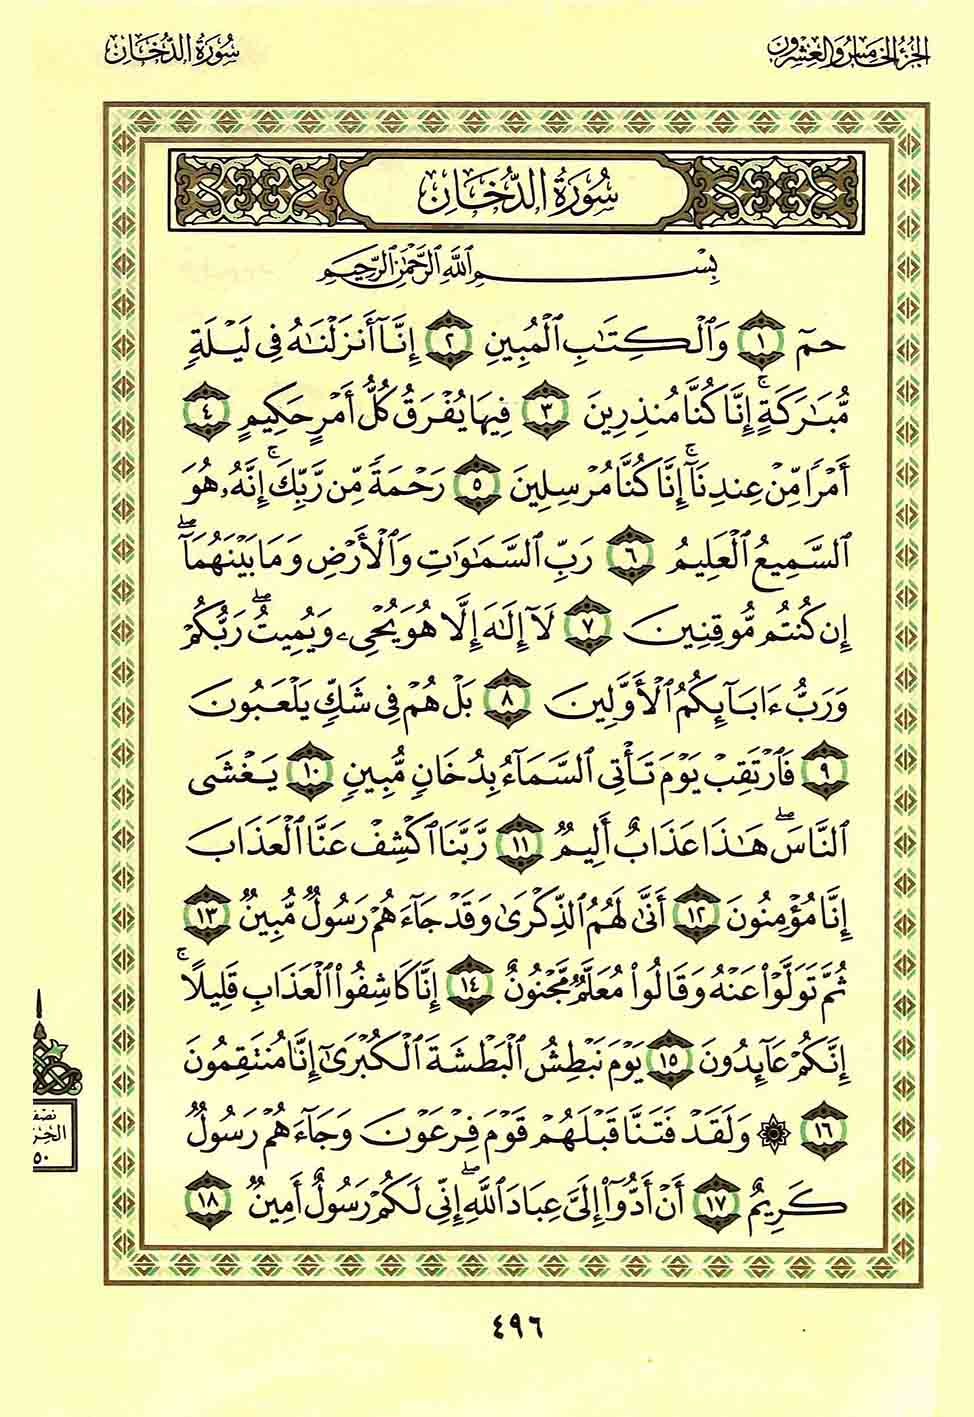 الجزء الخامس والعشرون
سُورَةُ الدُّخَانِ
سُورَةُ الدُّخَانِ
بِسْمِ ٱللَّهِ ٱلرَّحْمَٰنِ ٱلرَّحِيمِ
حمٓ ١ وَٱلْكِتَٰبِ ٱلْمُبِينِ ٢ إِنَّآ أَنزَلْنَٰهُ فِى لَيْلَةٍ
مُّبَٰرَكَةٍ ۚ إِنَّا كُنَّا مُنذِرِينَ ٣ فِيهَا يُفْرَقُ كُلُّ أَمْرٍ حَكِيمٍ ٤
أَمْرًا مِّنْ عِندِنَآ ۚ إِنَّا كُنَّا مُرْسِلِينَ ٥ رَحْمَةً مِّن رَّبِّكَ ۚ إِنَّهُۥ هُوَ
ٱلسَّمِيعُ ٱلْعَلِيمُ ٦ رَبِّ ٱلسَّمَٰوَٰتِ وَٱلْأَرْضِ وَمَا بَيْنَهُمَآ ۖ
إِن كُنتُم مُّوقِنِينَ ٧ لَآ إِلَٰهَ إِلَّا هُوَ يُحْىِۦ وَيُمِيتُ ۖ رَبُّكُمْ
وَرَبُّ ءَابَآئِكُمُ ٱلْأَوَّلِينَ ٨ بَلْ هُمْ فِى شَكٍّ يَلْعَبُونَ
٩ فَٱرْتَقِبْ يَوْمَ تَأْتِى ٱلسَّمَآءُ بِدُخَانٍ مُّبِينٍ ١٠ يَغْشَى
ٱلنَّاسَ ۖ هَٰذَا عَذَابٌ أَلِيمٌ ١١ رَّبَّنَا ٱكْشِفْ عَنَّا ٱلْعَذَابَ
إِنَّا مُؤْمِنُونَ ١٢ أَنَّىٰ لَهُمُ ٱلذِّكْرَىٰ وَقَدْ جَآءَهُمْ رَسُولٌ مُّبِينٌ ١٣
ثُمَّ تَوَلَّوْا۟ عَنْهُ وَقَالُوا۟ مُعَلَّمٌ مَّجْنُونٌ ١٤ إِنَّا كَاشِفُوا۟ ٱلْعَذَابِ قَلِيلًا ۚ
إِنَّكُمْ عَآئِدُونَ ١٥ يَوْمَ نَبْطِشُ ٱلْبَطْشَةَ ٱلْكُبْرَىٰٓ إِنَّا مُنتَقِمُونَ
١٦ ۞ وَلَقَدْ فَتَنَّا قَبْلَهُمْ قَوْمَ فِرْعَوْنَ وَجَآءَهُمْ رَسُولٌ
كَرِيمٌ ١٧ أَنْ أَدُّوٓا۟ إِلَىَّ عِبَادَ ٱللَّهِ ۖ إِنِّى لَكُمْ رَسُولٌ أَمِينٌ ١٨
٥٠
٤٩٦